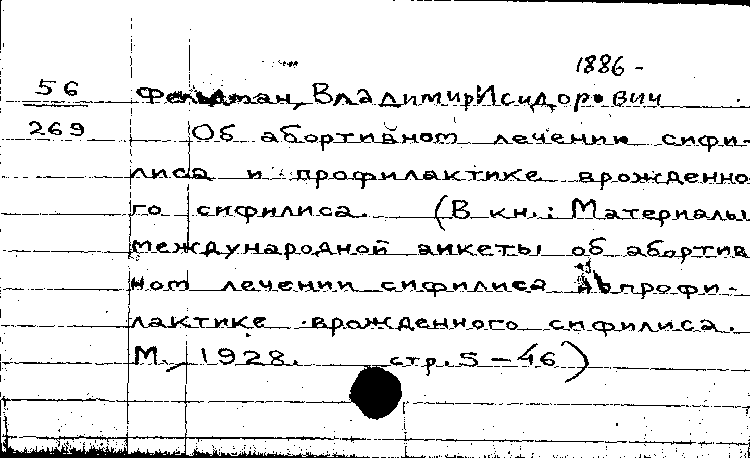 1886 -
56 Фельдман, Владимир Исидорович
269 Об абортивном лечении сифи-
лиса и профилактике врожденно
го сифилиса. (В кн.: Материалы
международной анкеты об абортив
ном лечении сифилиса и профи-
лактике врожденного сифилиса.
М., 1928. стр. 5-46)